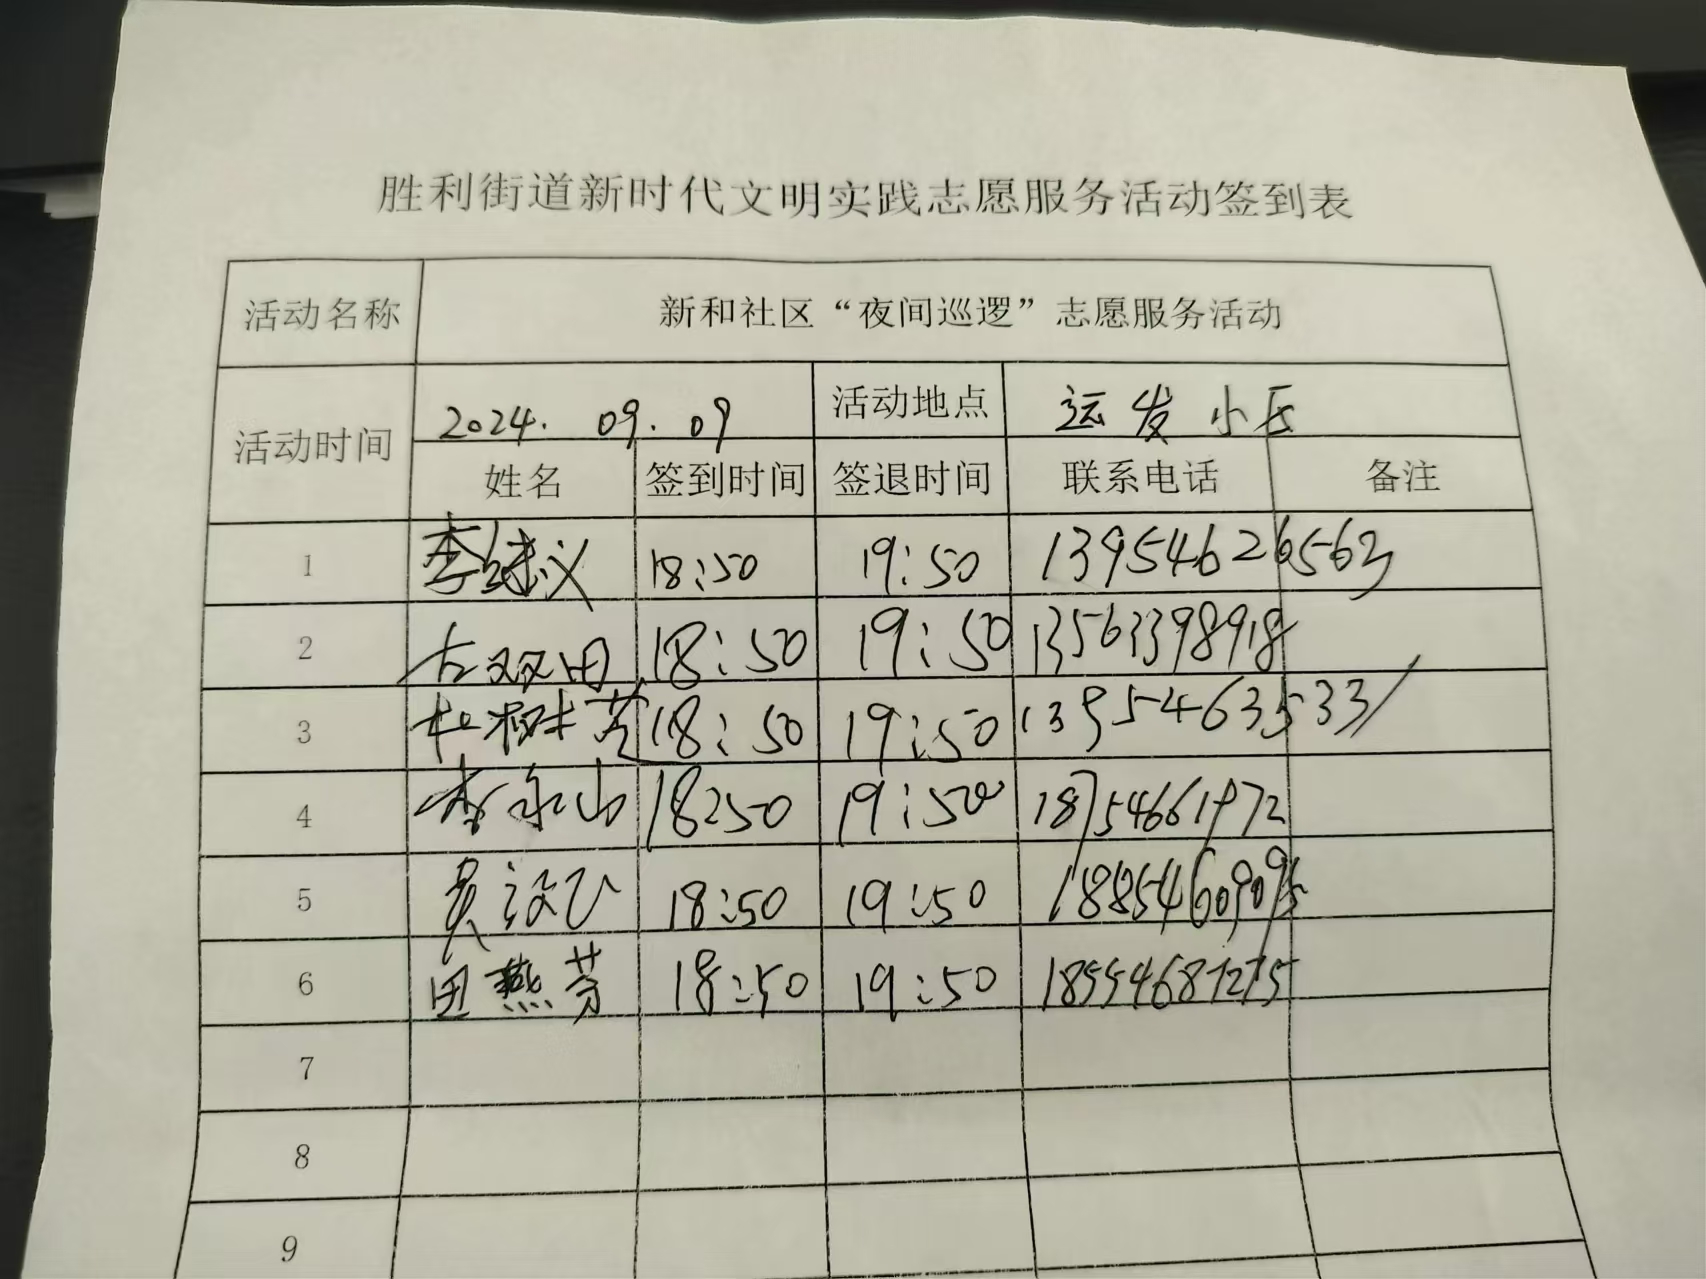 胜利街道新时代文明实践志愿服务活动签到表
活动名称 新和社区“夜间巡逻”志愿服务活动
活动时间 2024. 09. 09 活动地点 运发小区
姓名 签到时间 签退时间 联系电话 备注
1 李继义 18:50 19:50 13954626563
2 左双田 18:50 19:50 13563398918
3 杜树芝 18:50 19:50 13954635331
4 李永山 18:50 19:50 18754661972
5 18:50 19:50 18854609095
6 田燕芬 18:50 19:50
7
8
9